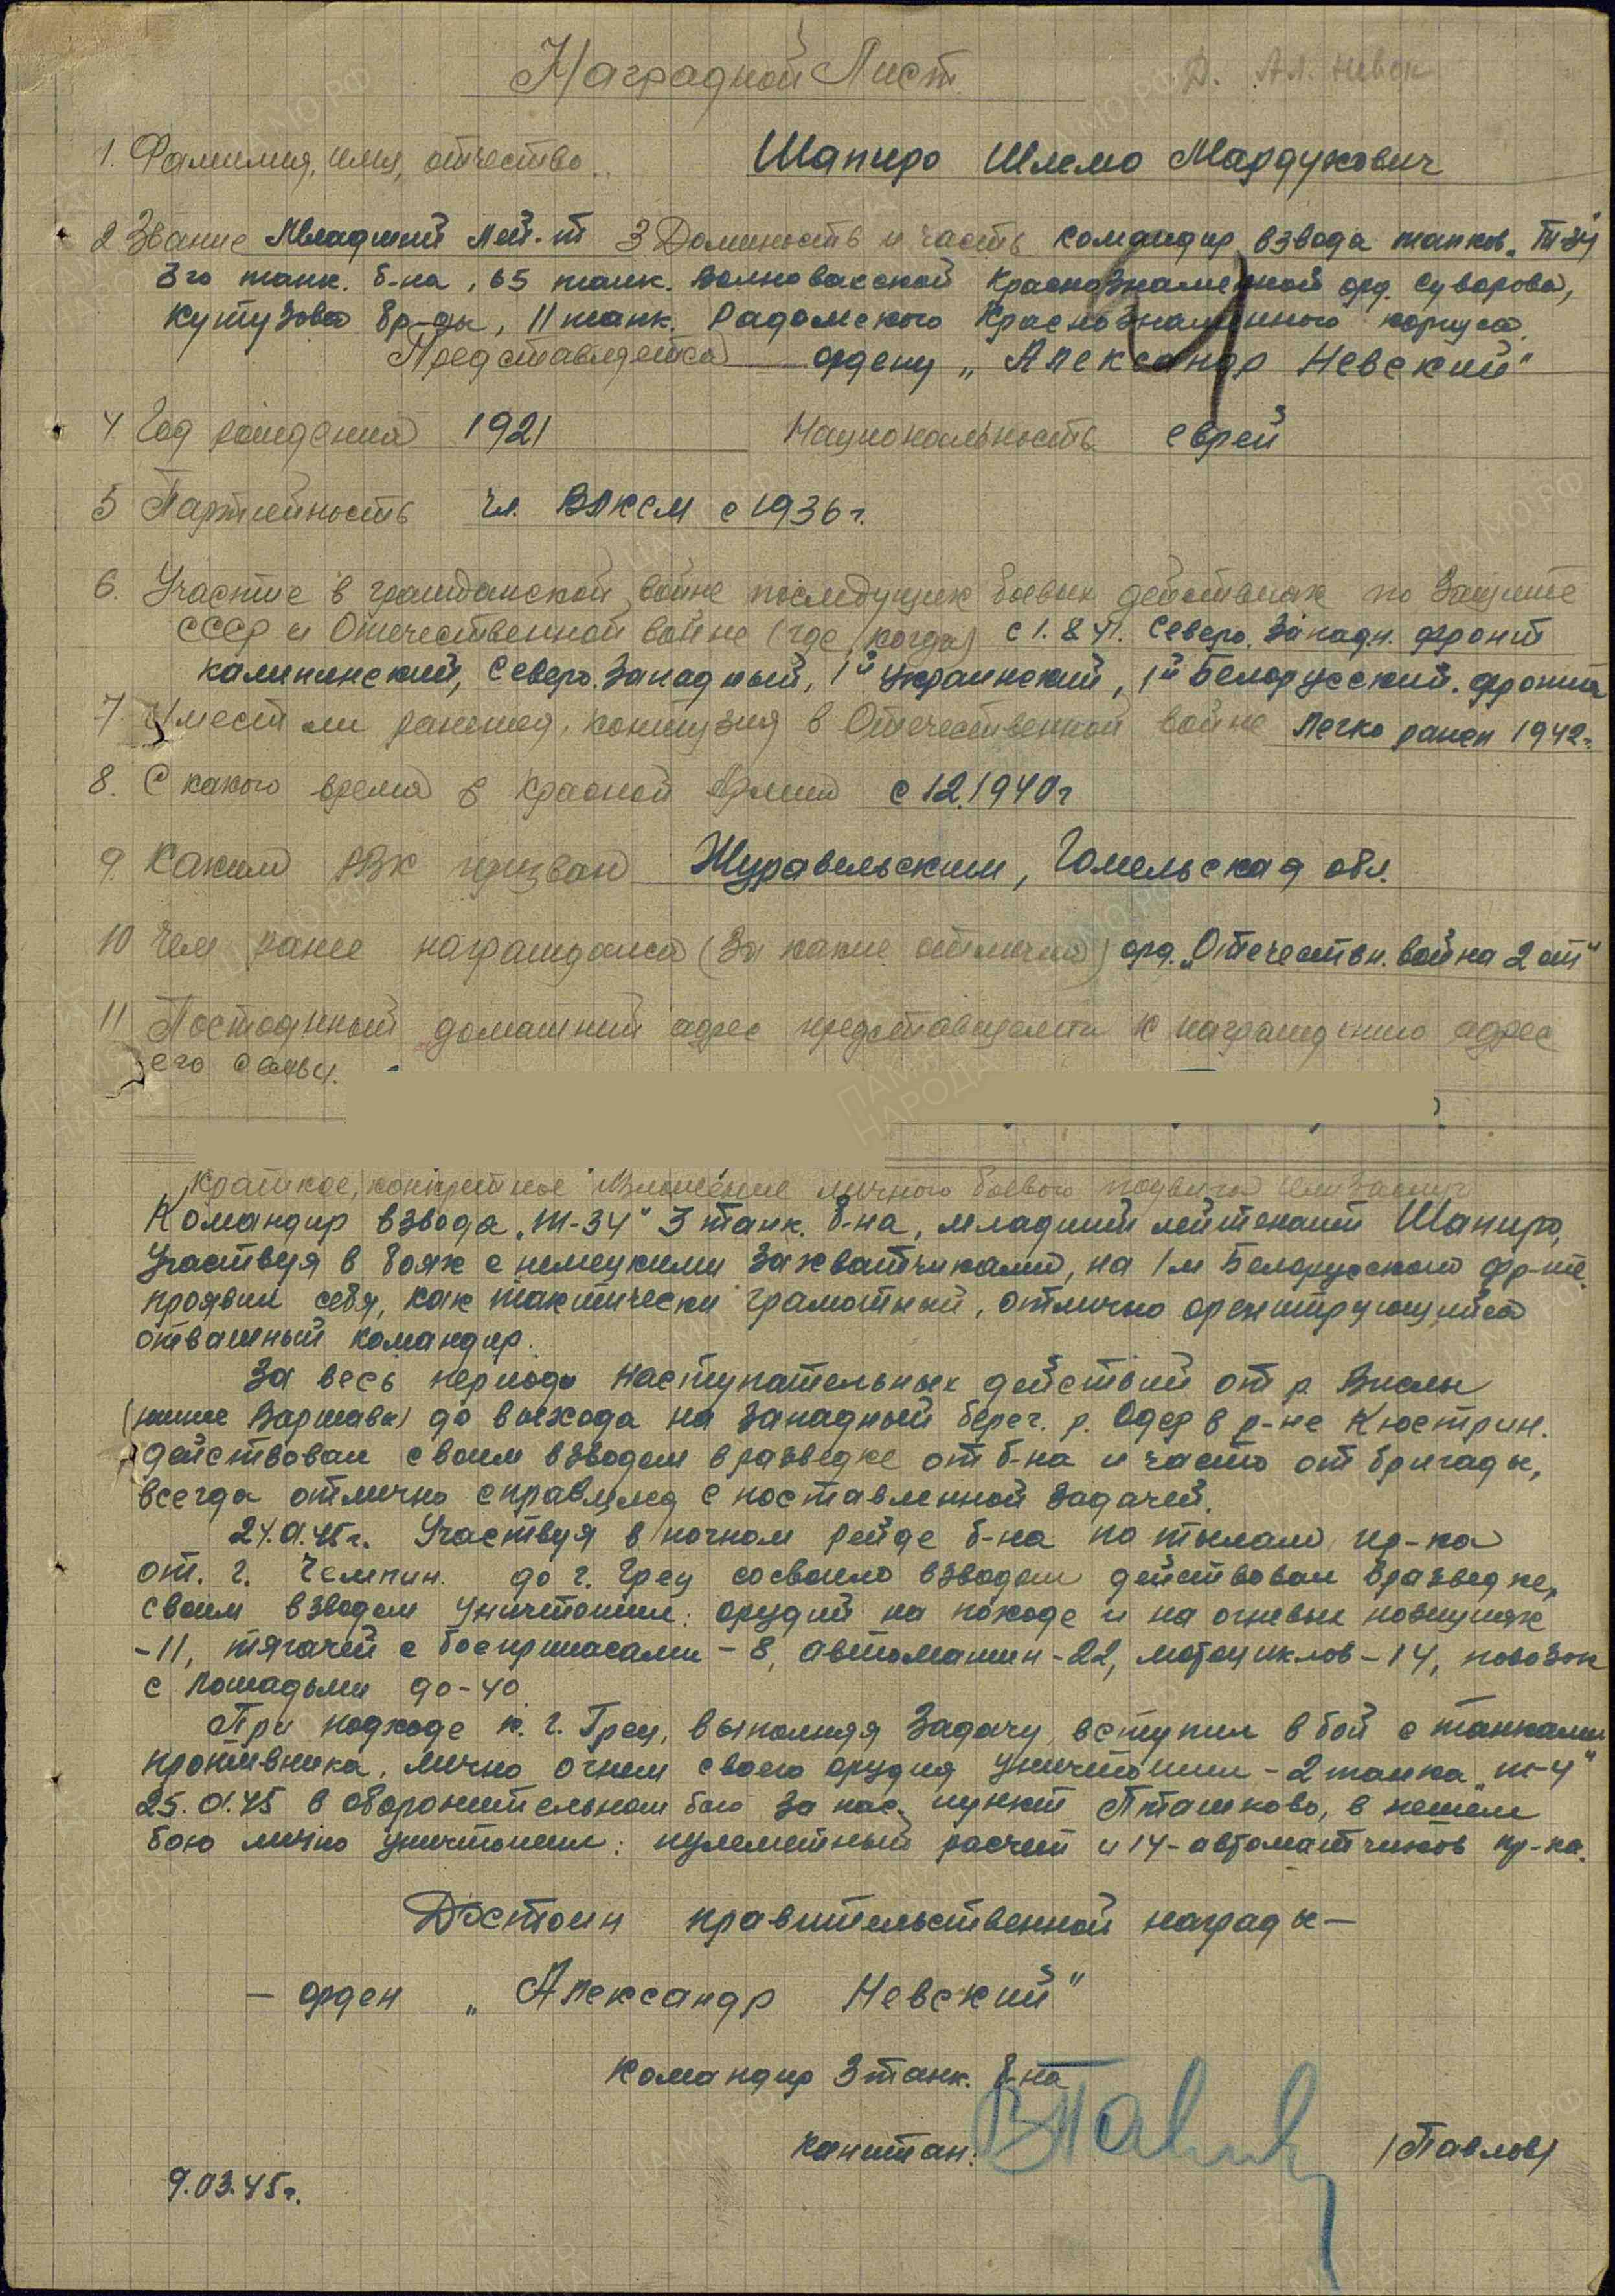 Наградной Лист
О. Ал. Невск
1. Фамилия, имя, отчество.. Шапиро Шлемо Мардухович
2 Звание Младший Лей-т 3 Должность и часть командир взвода танков „Т-34"
3го танк. б-на, 65 танк. Волновахской Краснознаменной орд. Суворова,
Кутузова бр-ды, 11 танк. Радомского Краснознаменного корпуса.
Представляется ордену „Александр Невский"
4. Год рождения 1921 Национальность еврей
5 Партийность Чл. ВЛКСМ с 1936 г.
6. Участие в гражданской войне последующих боевых действиях по защите
СССР и Отечественной войне (где, когда) с 1.8.41. Северо. Западн. фронт
Калининский, Северо. Западный, 1й Украинский, 1й Белорусский. фронта
7 Имеет ли ранения, контузия в Отечественной войне Легко ранен 1942г.
8. С какого время в Красной Армии с 12.1940г
9. Каким РВК призван Журавельским, Гомельская обл.
10 Чем ранее награждался (За какие отличия) орд. „Отечествн. война 2 ст"
11 Постоянный домашний адрес представляемого к награждению адрес
его семьи.
Краткое, конкретное изложение личного боевого подвига или заслуг
Командир взвода „Т-34" 3 танк. б-на, младший лейтенант Шапиро,
Участвуя в боях с немецкими захватчиками, на 1м Белорусском фр-те.
проявил себя, как тактически грамотный, отлично орентирующийся
отважный командир.
За весь период наступательных действий от р. Вислы
(южнее Варшавы) до выхода на западный берег. р. Одер в р-не Кюстрин.
действовал своим взводом в разведке от б-на и часто от бригады,
всегда отлично справлялся с поставленной задачей.
24.01.45г. Участвуя в ночном рейде б-на по тылам пр-ка
от. г. Чемпин. до г. Грец со своим взводом действовал в разведке,
своим взводом уничтожил: орудий на походе и на огневых позициях
-11, тягачей с боеприпасами - 8, автомашин - 22, мотоциклов - 14, повозок
с лошадьми до - 40
При подходе к. г. Грец, выполняя задачу вступил в бой с танками
противника, лично огнем своего орудия уничтожил - 2 танка „т-4"
25.01.45 в оборонительном бою за нас. пункт Пташково, в пешем
бою лично уничтожил: пулеметный расчет и 14 - автоматчиков пр-ка.
Достоин правительственной награды —
— орден „Александр Невский"
Командир 3 танк. б-на
капитан: /Павлов/
9.03.45г.